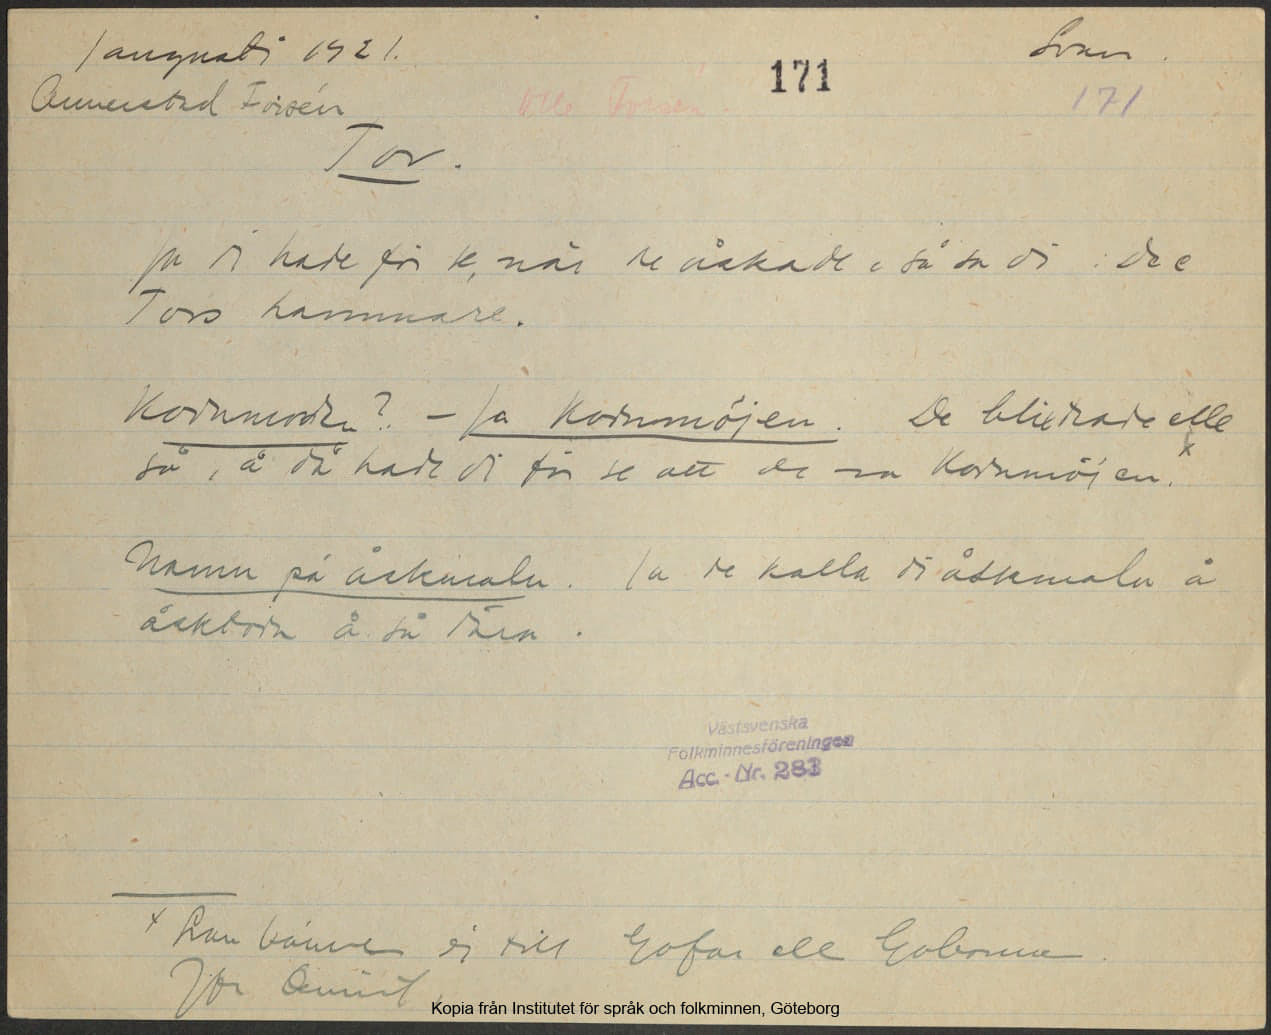 1 augusti 1921.
171
171
Forsén
Olle Forsén.
Tor.
Ja di hade för se, när de åskade, så sa di: De e
Tors hammare.
Kornmoden? – Ja Kornmöjen. De blixtrade elle
så, å då hade di för se att de va Kornmöjen.x
Namn på åskmoln. Ja de kalla di åskmoln å
åskbodn å så där.
Västsvenska
Folkminnesföreningen
Acc.-Nr. 283
x Han känner ej till Gofar ell Gobonne.
Jfr
Kopia från Institutet för språk och folkminnen, Göteborg